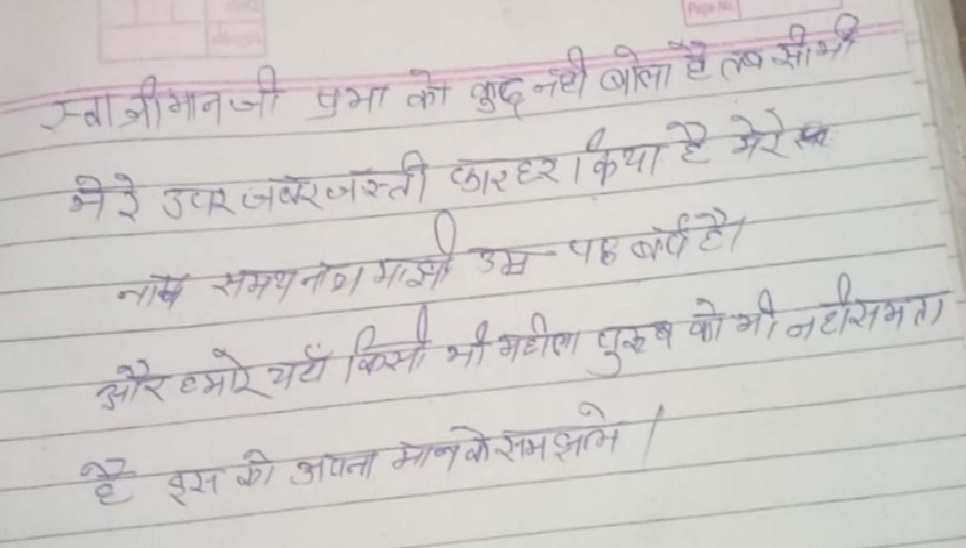 Page No.
स्वाश्रीमानजी प्रभा को कुछ नही बोला है तब सीभी
मेरे उपर जबरजस्ती कारहर किया है मेरे
नाम समथनाथ माझी उम्र
और हमारे यहाँ किसी भी महीला पुरुष को भी नहीसमता
है इस को अपना मानकोसमझाले।